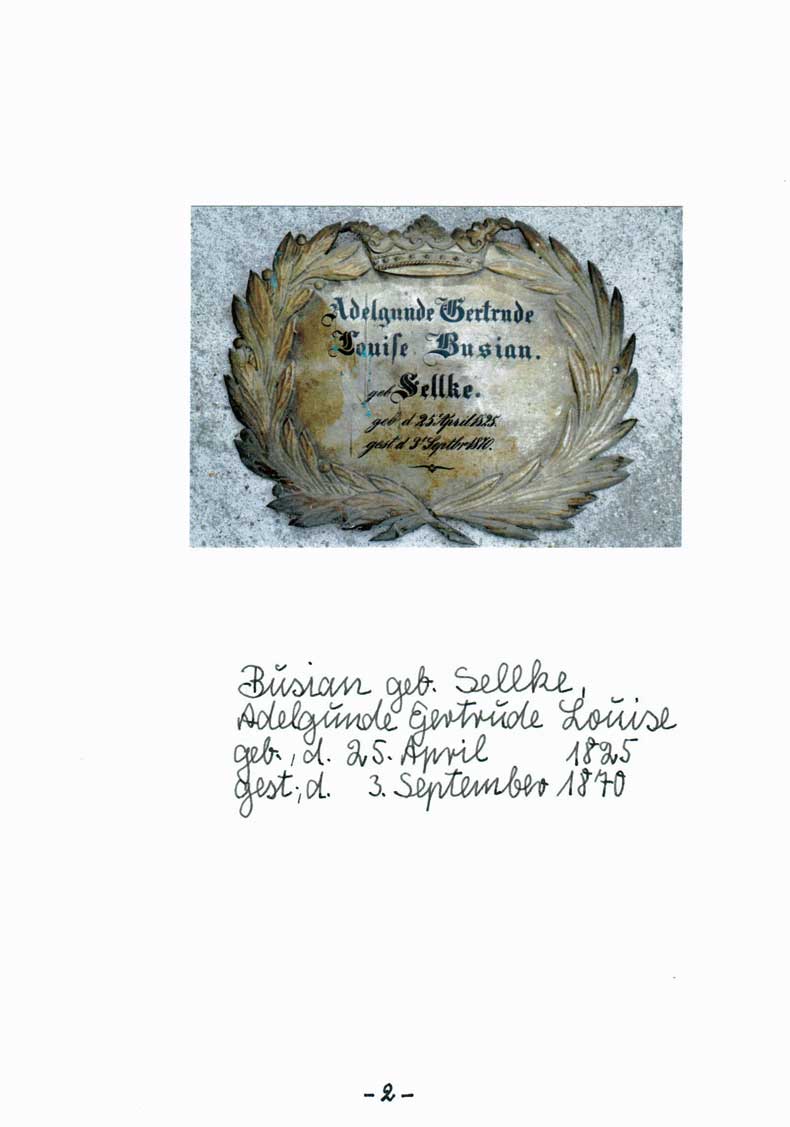 Adelgunde Gertrude
Louise Busian.
geb Sellke.
geb d 25 April 1825.
gest d 3t Septbr 1870.
Busian geb. Sellke,
Adelgunde Gertrude Louise
geb., d. 25. April 1825
gest., d. 3. September 1870
- 2 -